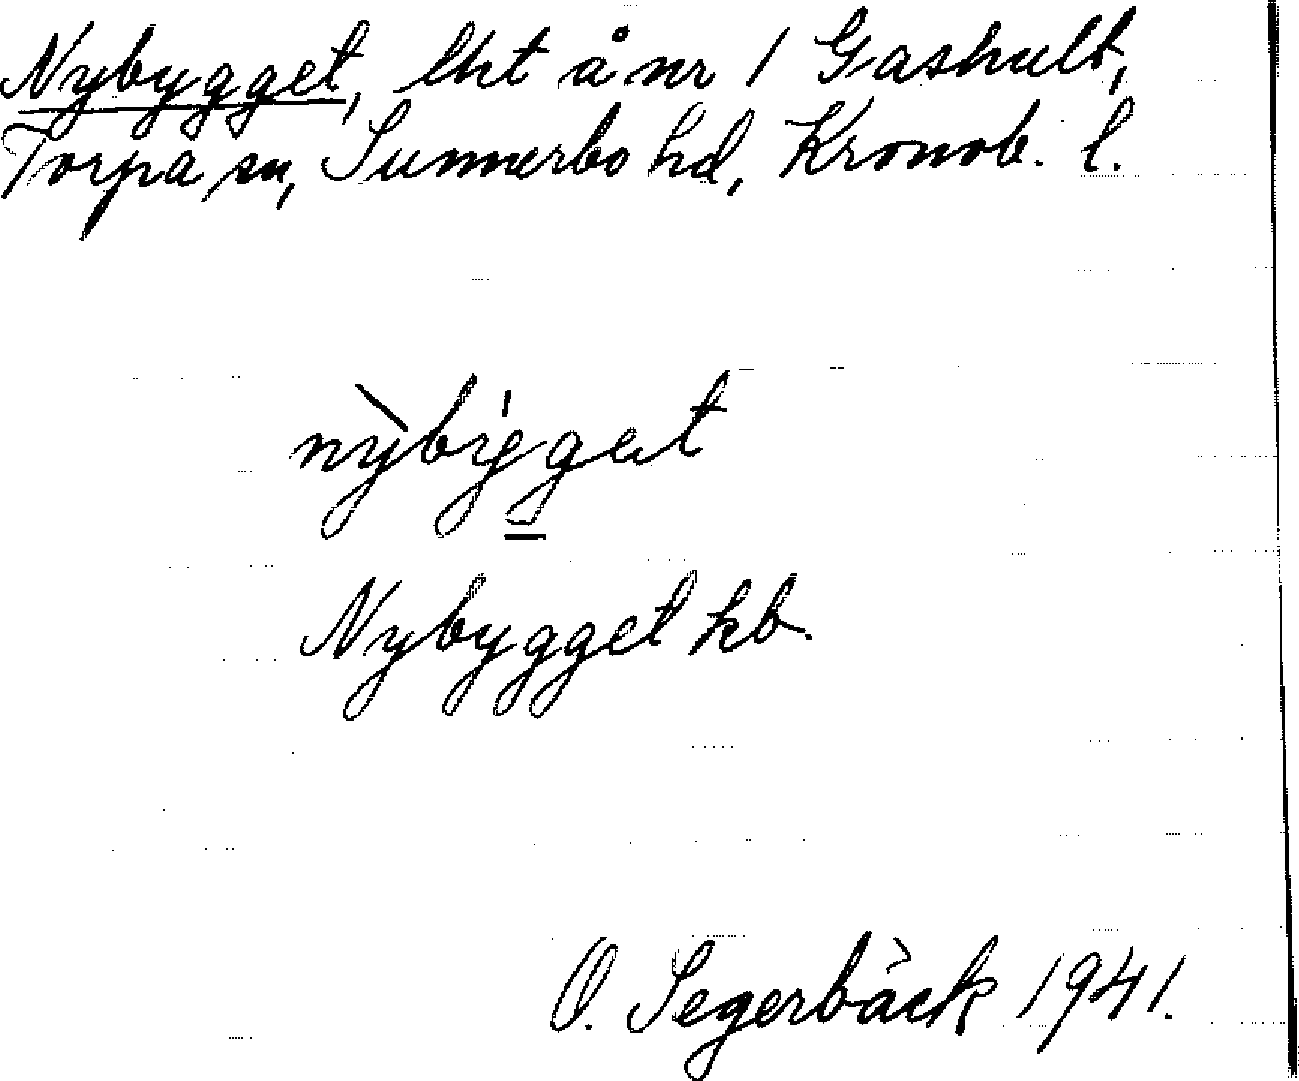 Nybygget, lht å nr 1 Gashult,
Torpa sn, Sunnerbo hd, Kronob. l.
Nybygget kb.
O. Segerbäck 1941.